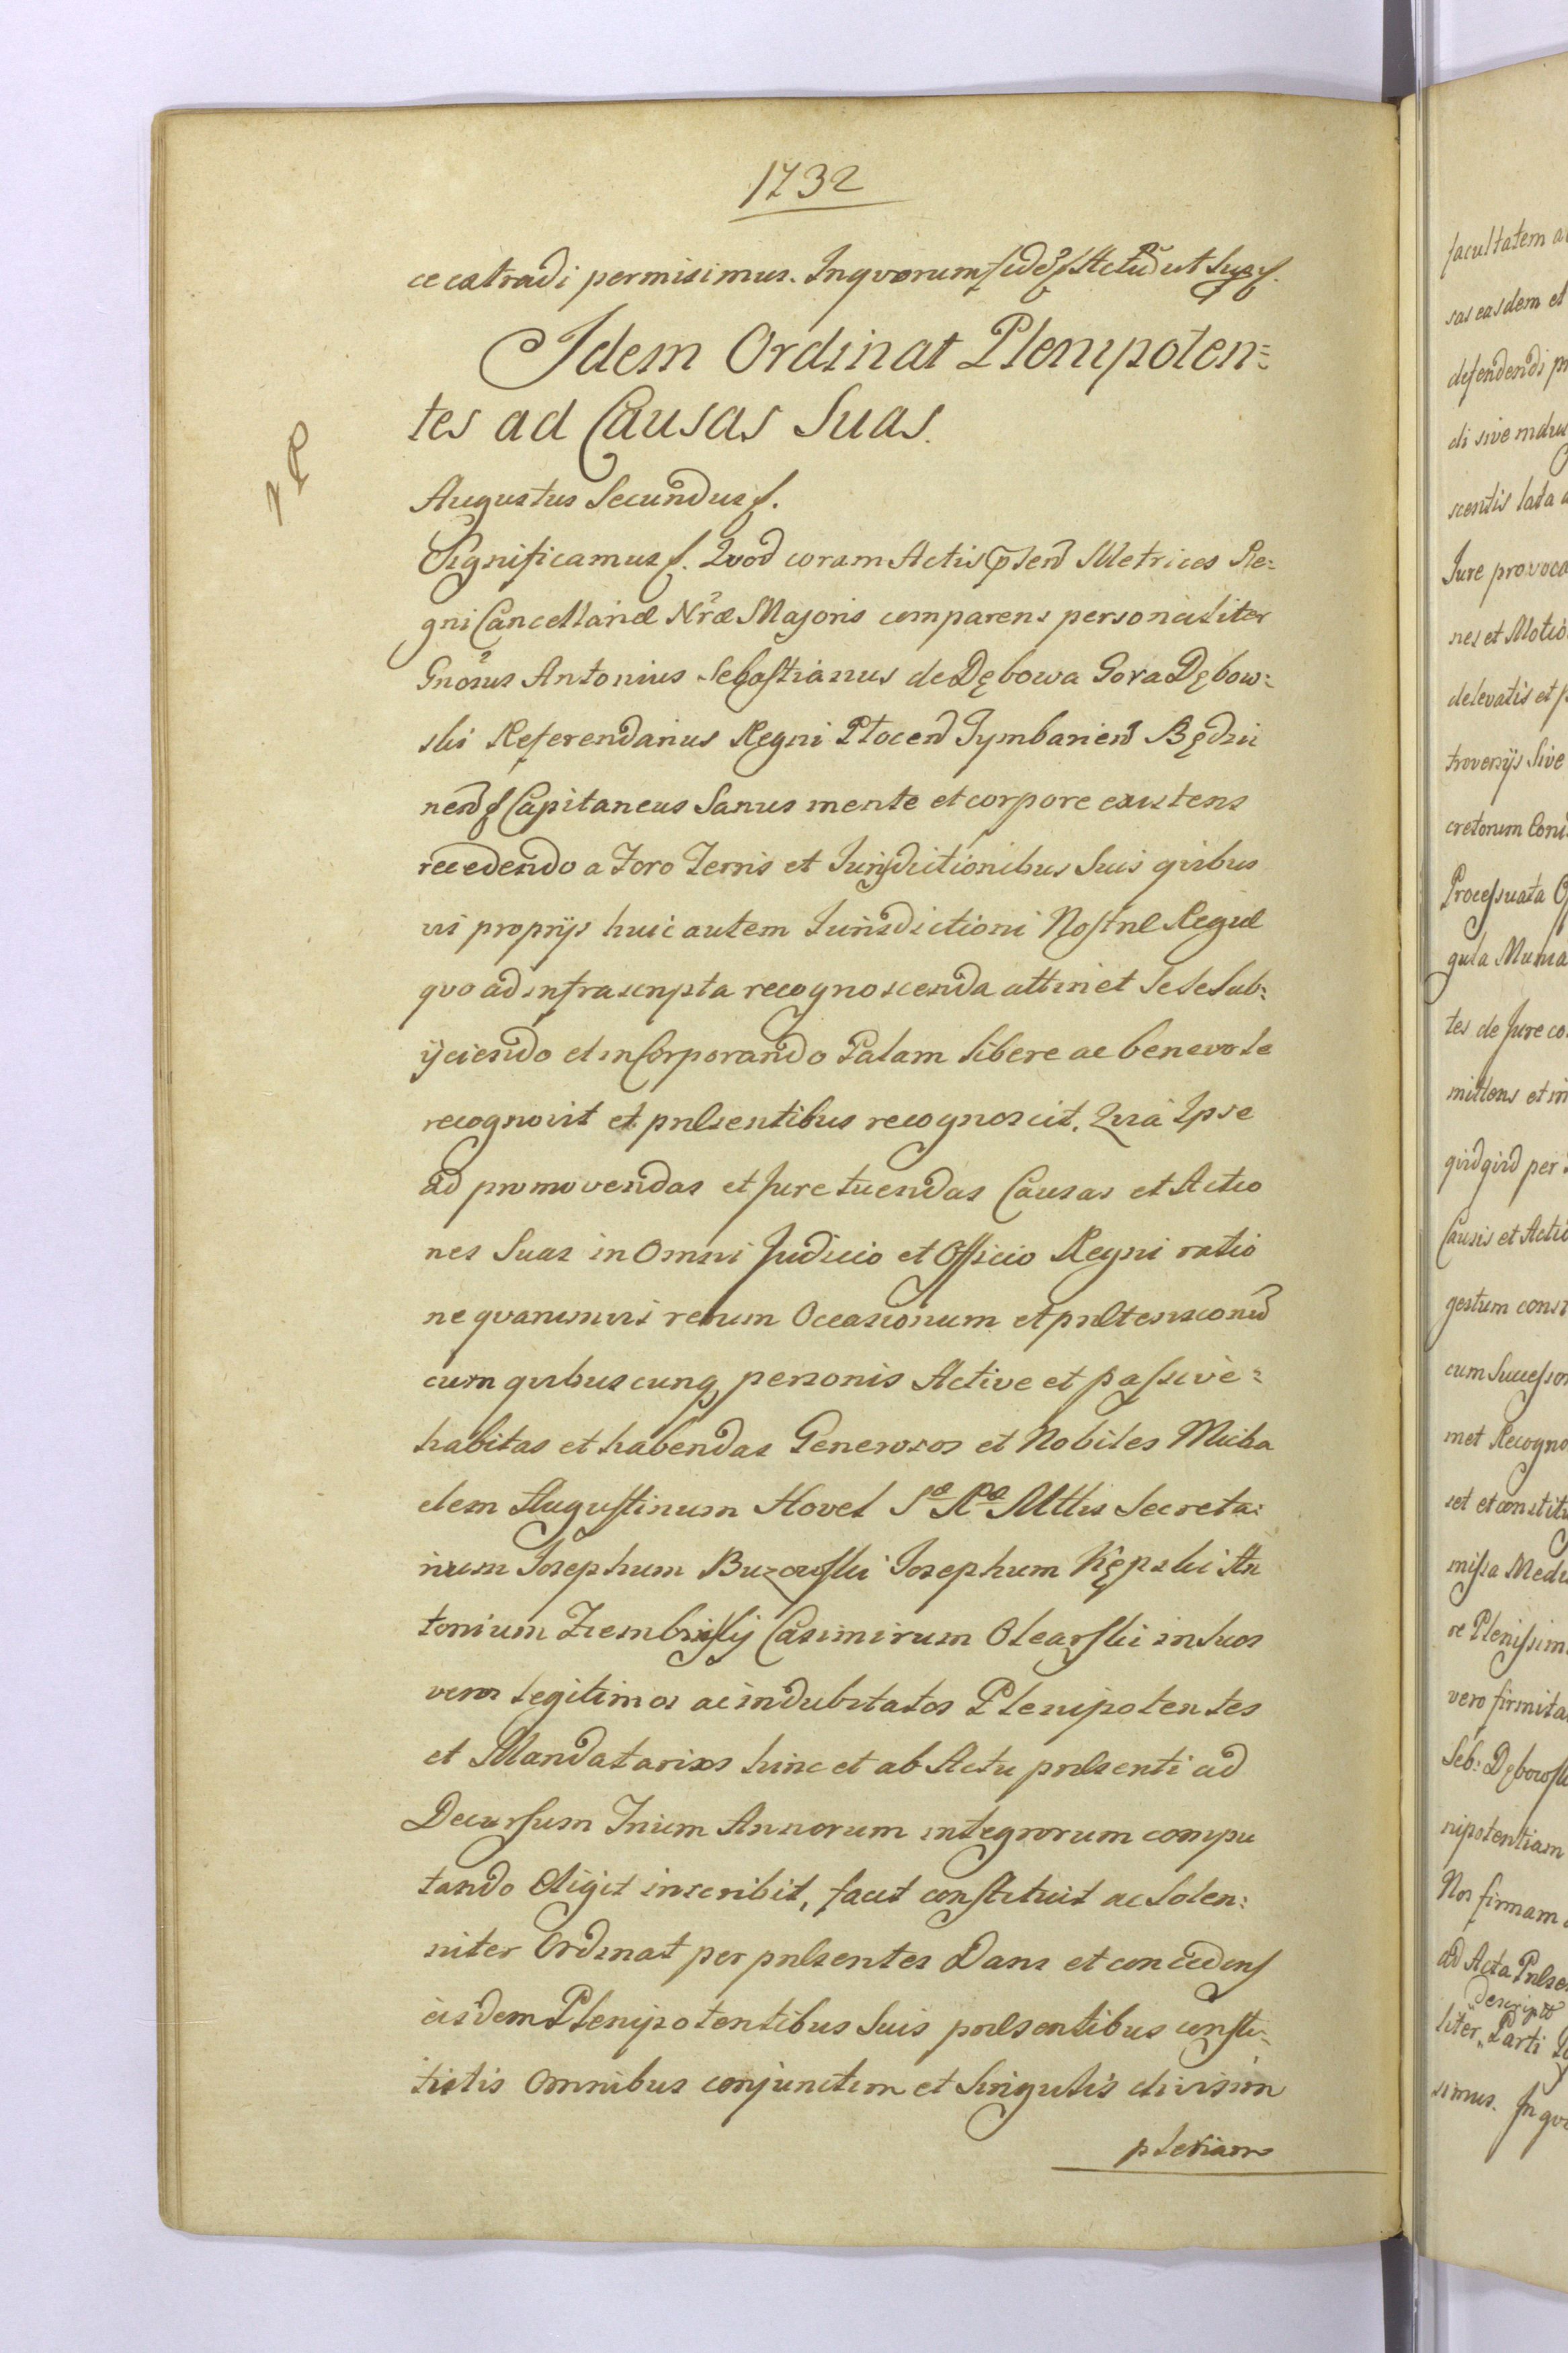 1732
ce extradi permisimus. In qvorum fidē Actū ut Supꝭ.
Idem Ordinat Plenipoten=
tes ad Causas Suas.
Augustus Secundus ꝭ.
Significamus ꝭ. Qvod coram Actis p̄sen Metrices Re=
gni Cancellariæ Nr̃æ Majoris comparens personaliter
Gnosus Antonius Sebastianus de Dębowa Gora Dębow=
ski Referendarius Regni Plocen Tymbarien Będzi
nen ꝭ Capitaneus Sanus mente et corpore existens
recedendo a Foro Terris et Jurisdictionibus Suis qvibus
vis proprijs huic autem Jurisdictioni Nostræ Regiæ
qvo ad infrascripta recognoscenda attinet Se se Sub=
ijciendo et inCorporando Palam libere ac benevole
recognovit et præsentibus recognoscit. Qvia Ipse
ad promovendas et Jure tuendas Causas et Actio
nes Suas in Omni Judicio et Officio Regni ratio
ne qvarumvis rerum Occasionum et prætensionū
cum qvibuscunqꝫ personis Active et passive=
habitas et habendas Generosos et Nobiles Micha
elem Augustinum Hovel Sæ Ræ Mttis Secreta=
rium Josephum Buzowski Josephum Kępski An
tonium Ziembinskij Casimirum Olearski in Suos
veros legitimos ac indubitatos Plenipotentes
et Mandatarios hinc et ab Actu præsenti ad
Decursum Trium Annorum integrorum compu
tando Eligit inscribit, facit constituit ac Solen=
niter Ordinat per præsentes Dans et concedens
eisdem Plenipotentibus Suis præsentibus consti=
tutis Omnibus conjunctim et Singulis divisim
plenam
facultatem
sas easdem et
defendendi
di sive
scentis lata
Jure provoca
nes et Motio
delevatis et
troversijs Sive
cretorum
Processuata
gula
tes de Jure co
mittens et in
qvidqvid per
Causis et Actio
gestum
cum Successor
met Recogno
set et constitu
missa
re Plenissim
vero firmita
Seb: Dębowsk
nipotentiam
Nos firmam
ad Acta Præse
Descript
liter Parti
simus. In qvo